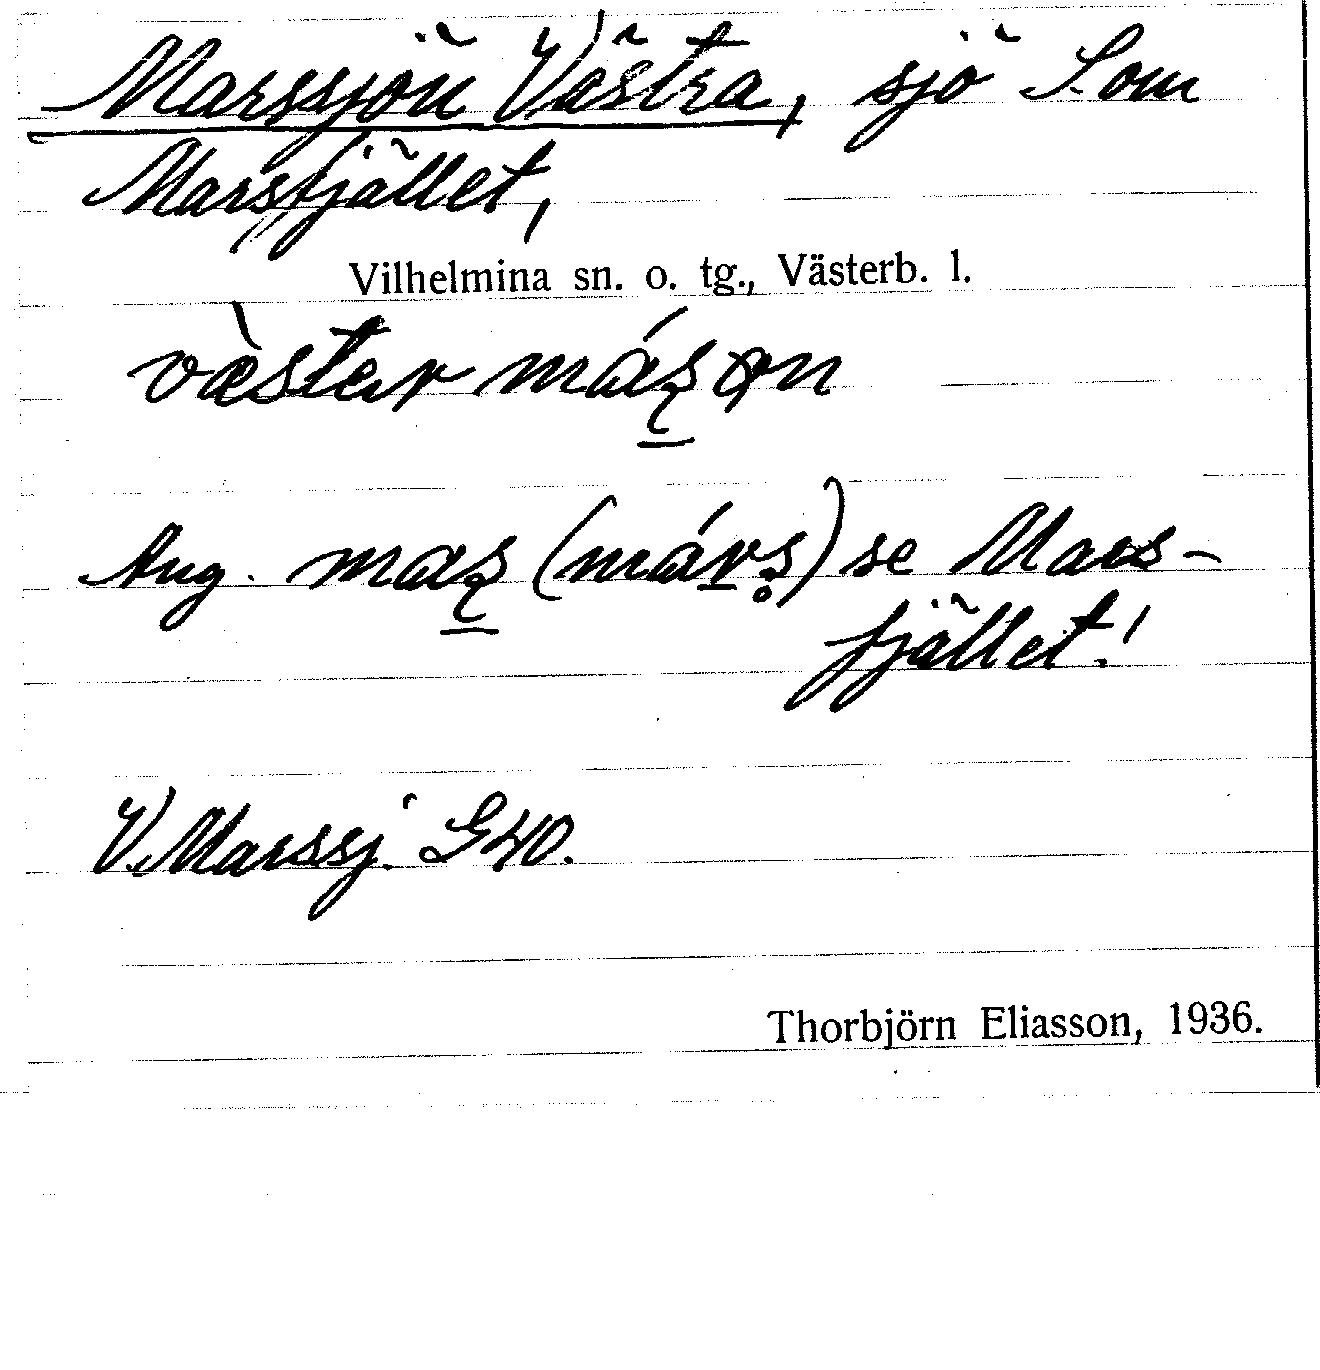 Marssjön Västra, sjö S. om
Marsfjället,
Vilhelmina sn. o. tg., Västerb. l.
Ang. (márs) se Mars-
fjället!
V. Marssj. G40.
Thorbjörn Eliasson, 1936.